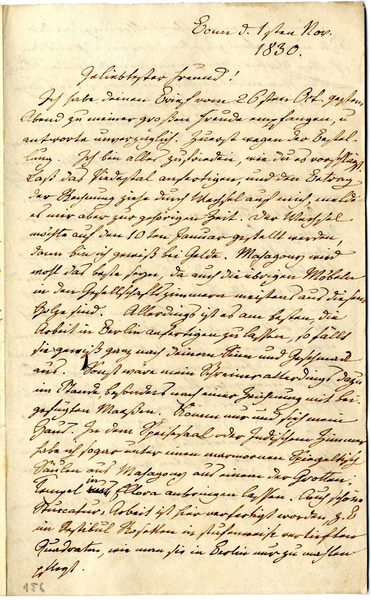 Bonn d. 1sten Nov.
1830.
Geliebtester Freund!
Ich habe deinen Brief vom 26sten Oct. gestern
Abend zu meiner großen Freude empfangen, u
antworte unverzüglich. Zuerst wegen der Bestel-
lung. Ich bin alles zufrieden, wie du es vorschlägst.
Laß das Piedestal anfertigen, und den Betrag
der Rechnung ziehe durch Wechsel auf mich, melde
es mir aber zur gehörigen Zeit. Der Wechsel
möchte auf den 10ten Januar gestellt werden,
dann bin ich gewiß bei Gelde. Mahagony wird
wohl das beste seyn, da auch die übrigen Möbeln
in den Gesellschaftszimmern meistens aus diesem
Holze sind. Allerdings ist es am besten, die
Arbeit in Berlin anfertigen zu lassen, so fällt
sie gewiß ganz nach deinem Sinn und Geschmack
aus. Sonst wäre mein Schreiner allerdings dazu
im Stande, besonders nach einer Zeichnung mit bei-
gefügten Maaßen. Komm nur und sieh mein
Haus. In dem Speisesaal oder Indischen Zimmer
habe ich sogar unter einem marmornen Spiegeltisch
Säulen aus Mahagony aus einem der Grotten-
Tempel in Ellora anbringen lassen. Auch schöne
Stuccatur-Arbeit ist hier verfertigt worden, z. E.
im Vestibul Rosetten in stufenweise vertieften
Quadraten, wie man sie in Berlin nur zu machen
pflegt.
156